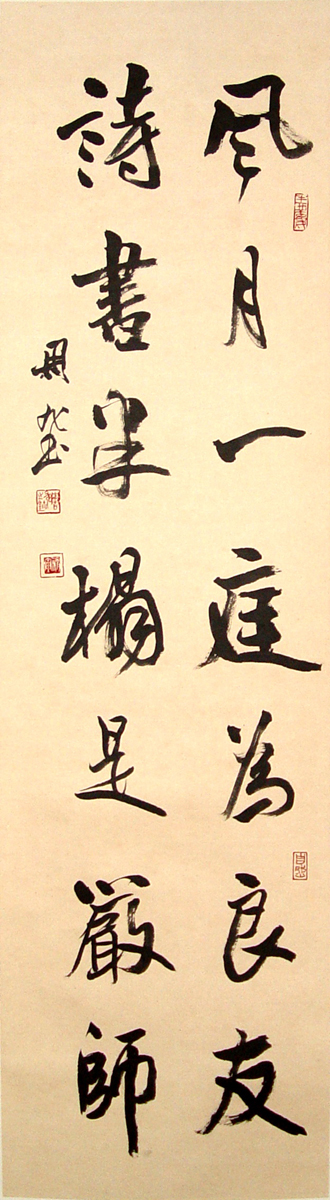 風月一庭為良友
詩書半榻是嚴師